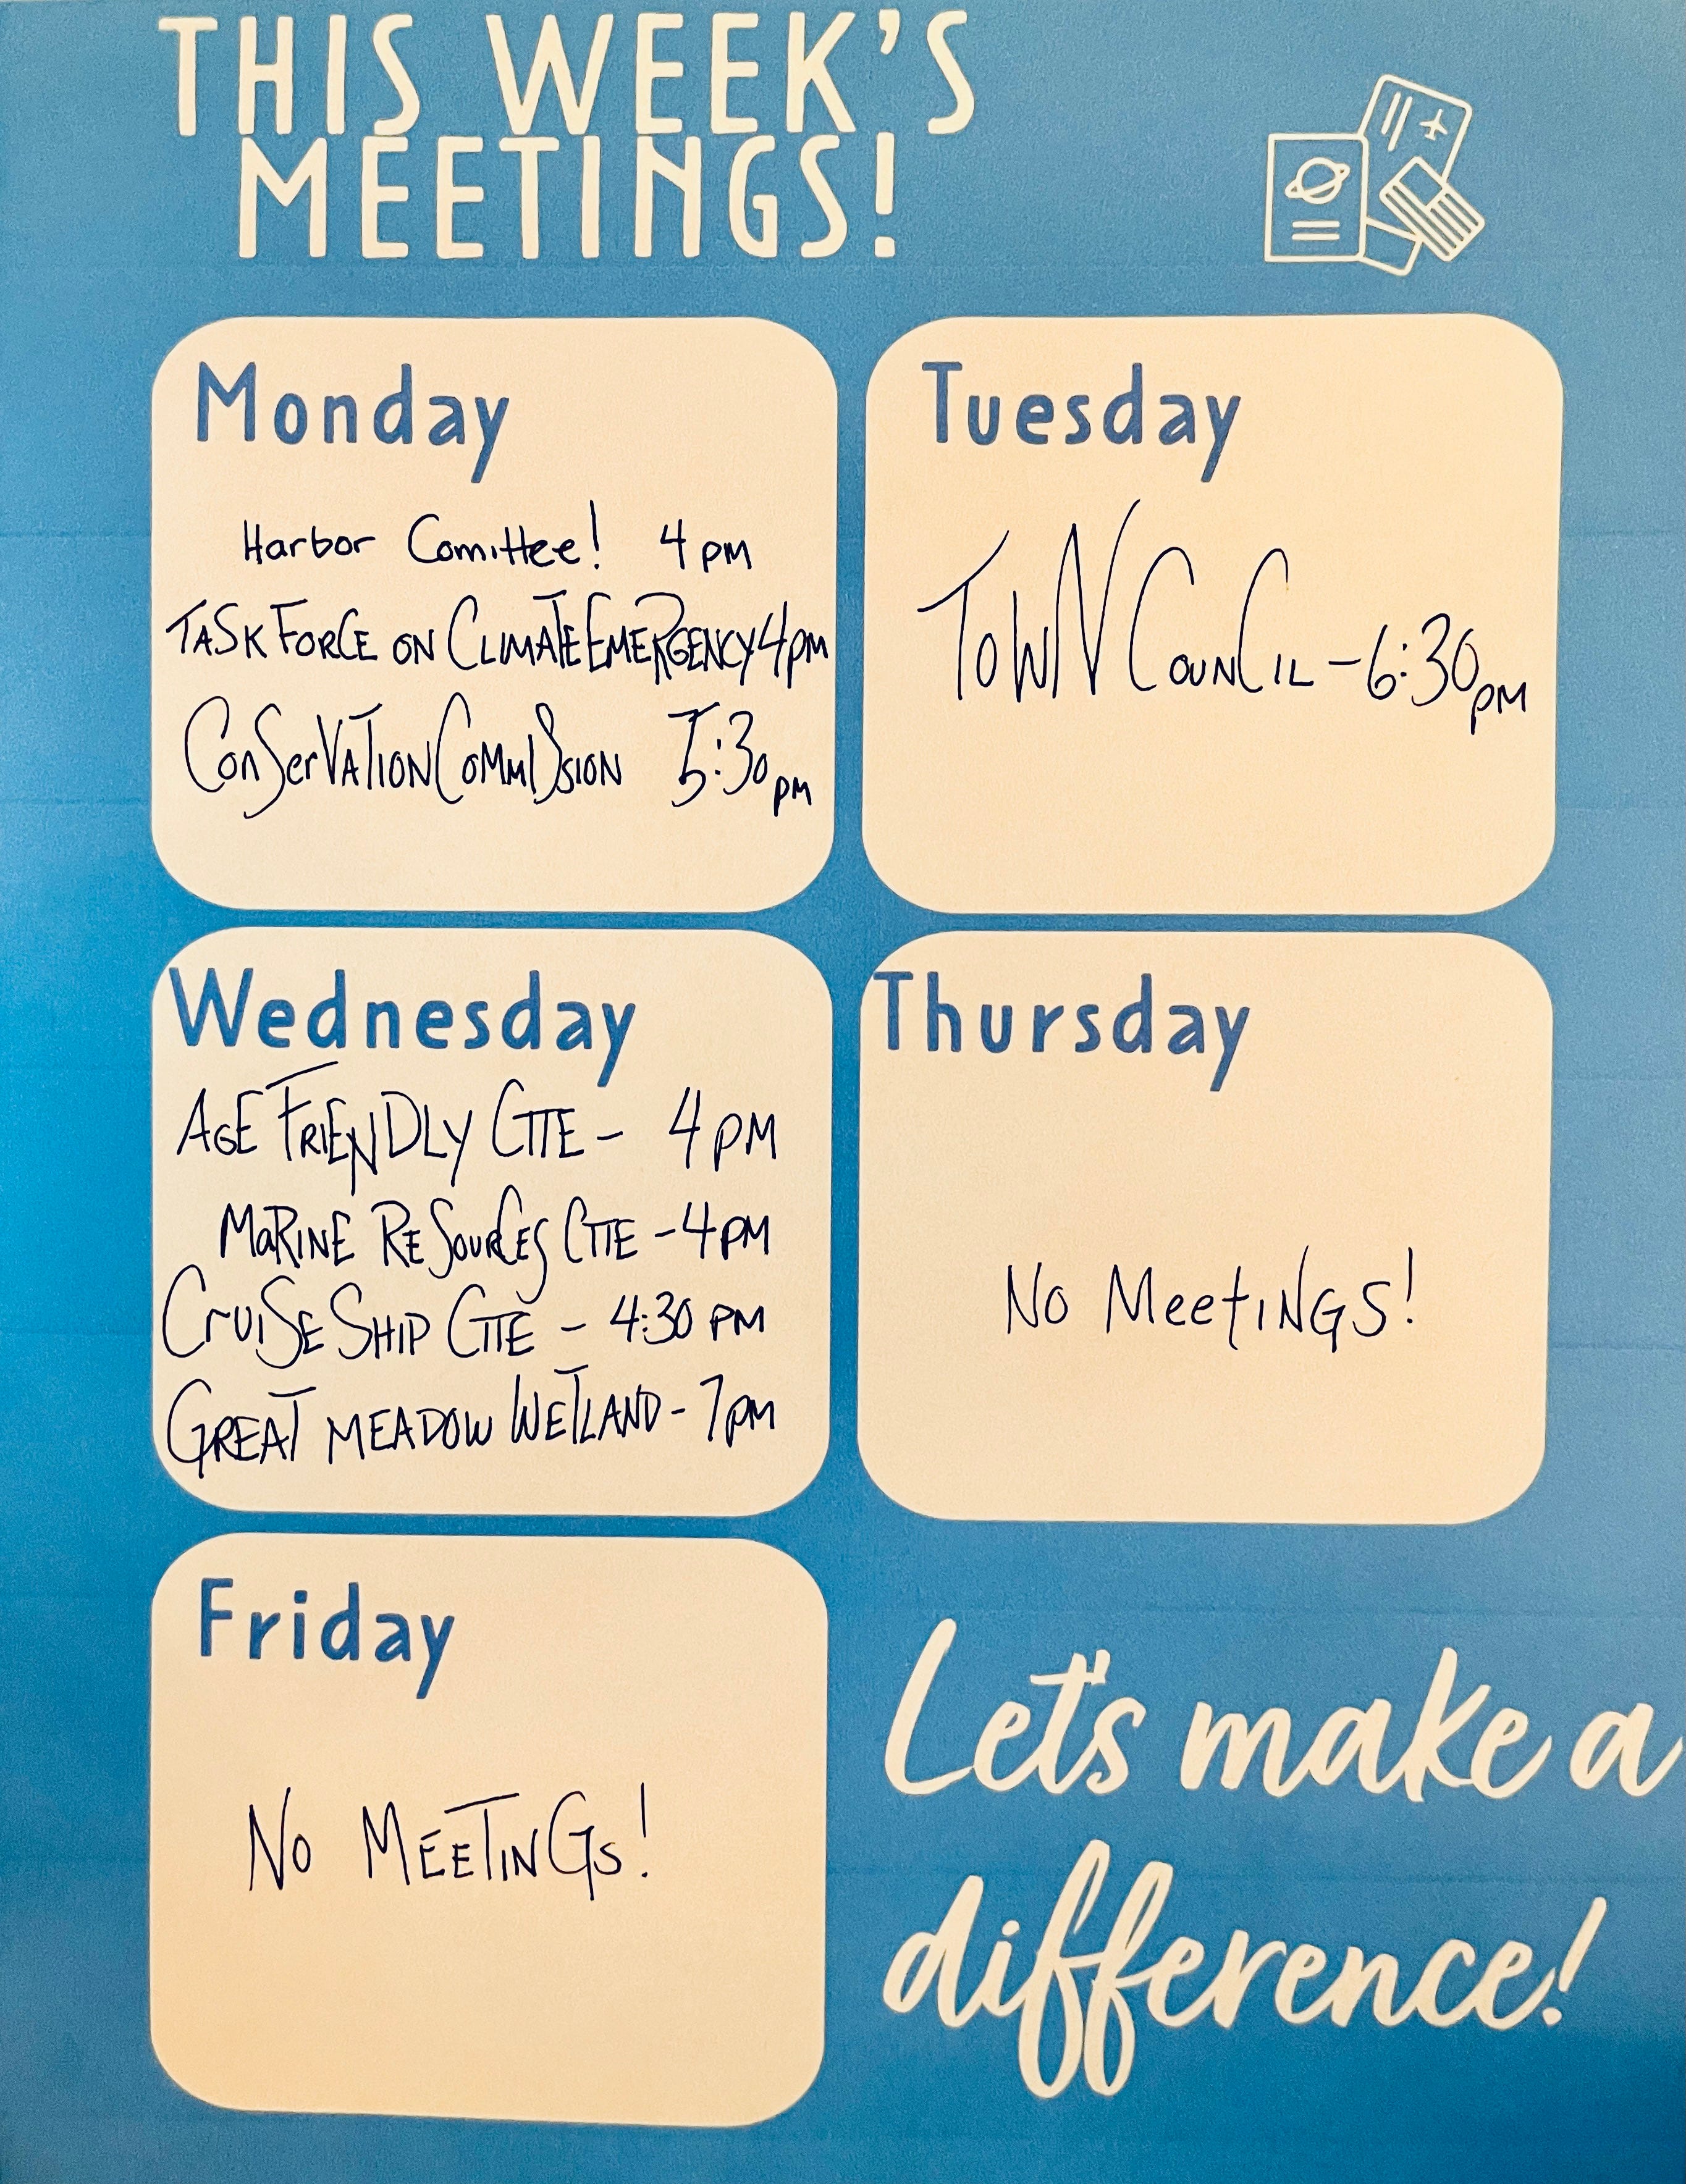 THIS WEEK'S
MEETINGS!
Monday
Harbor Comittee! 4 pm
TASK FORCE ON CLIMATE EMERGENCY 4pm
ConSerVATION COMMISSION 5:30pm
Tuesday
TOWN COUNCIL - 6:30pm
Wednesday
AGE FRIENDLY CTTE - 4 PM
MaRINE RESOURCES CTTE - 4 PM
CruiSE SHIP CTTE - 4:30 PM
GREAT MEADOW WETLAND - 7pm
Thursday
No MeetINGS!
Friday
No MEETINGs!
Let's make a
difference!